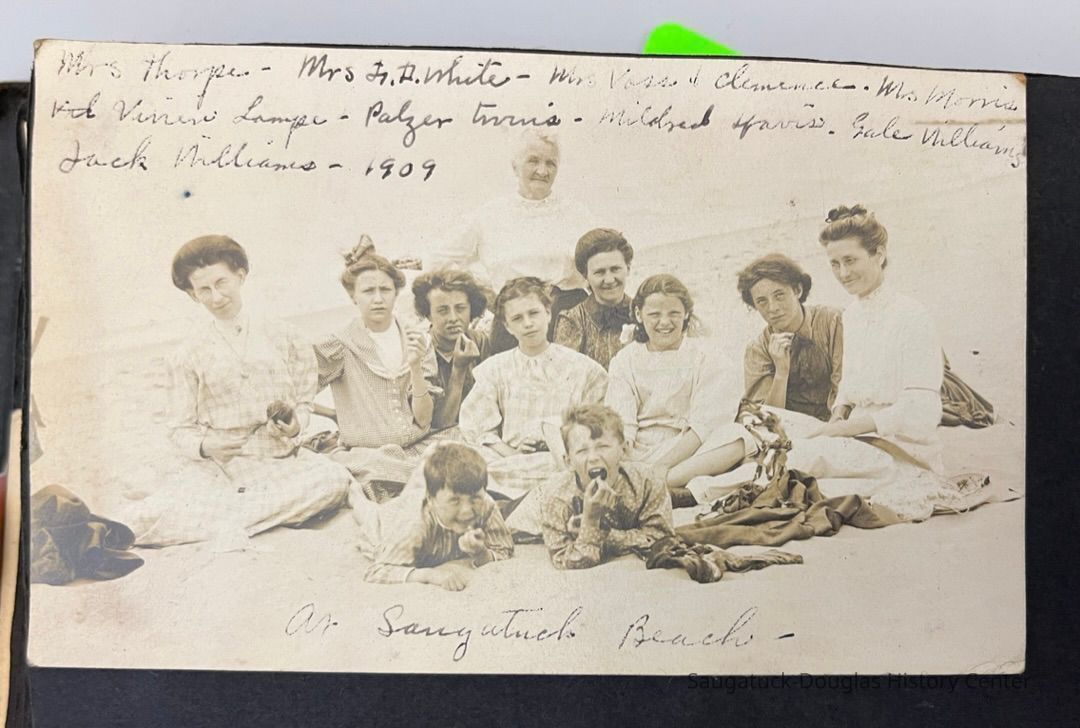 Mrs Thorpe - Mrs F. D. White - Mrs Voss & Clemence. Mrs Morris
Lampe - Palzer twins - Mildred Gale Williams
Jack Williams - 1909
At Saugatuck Beach -
Saugatuck-Douglas History Center